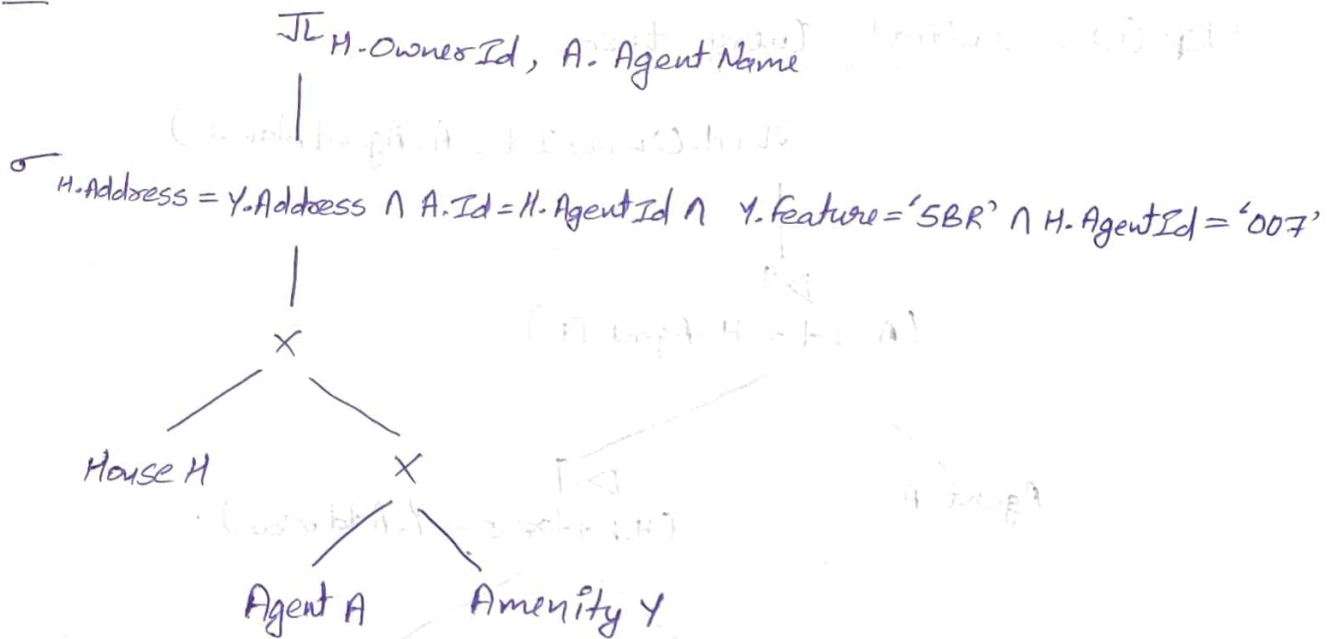 π H.OwnerId, A.AgentName
σ H.Address = Y.Address ∩ A.Id = H.AgentId ∩ Y.feature = '5BR' ∩ H.AgentId = '007'
X
House H X
Agent A Amenity Y